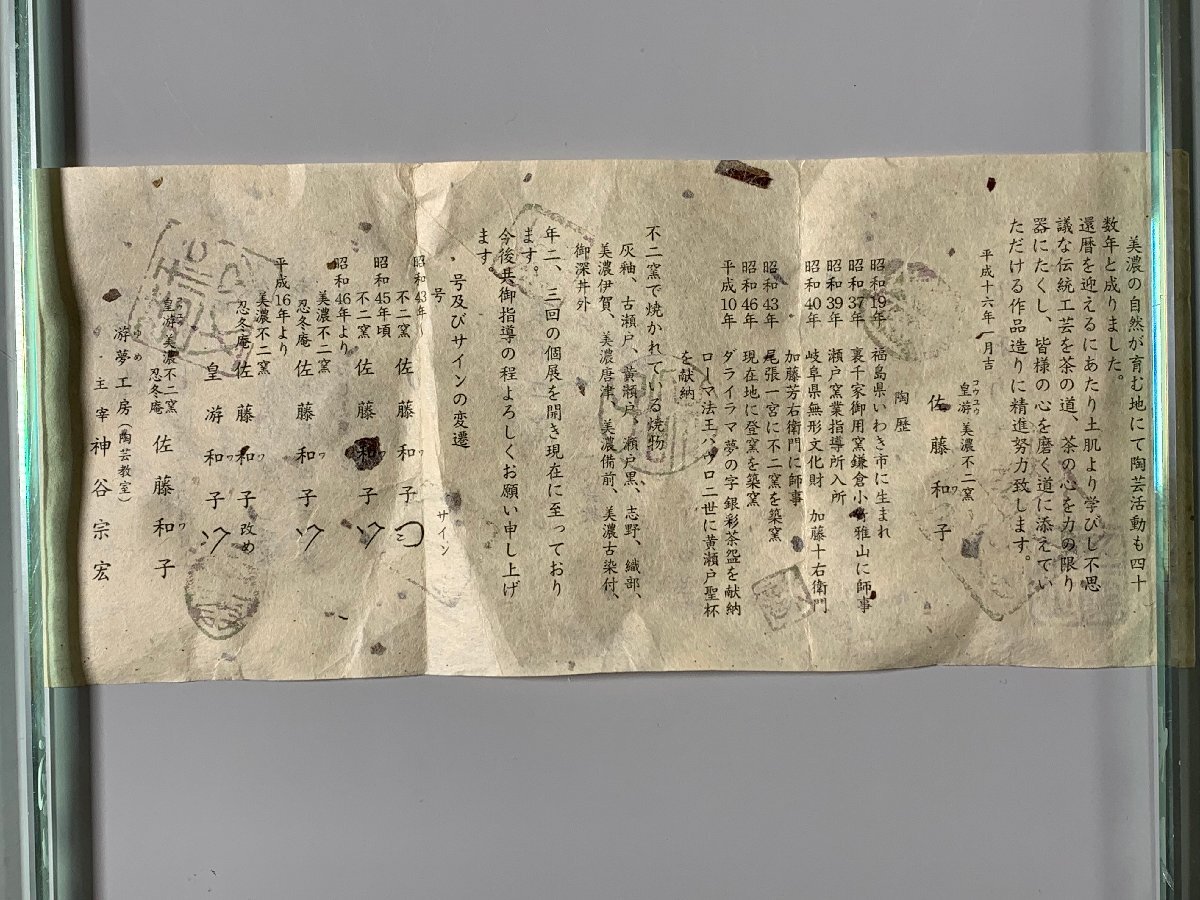 美濃の自然が育む地にて陶芸活動も四十
数年と成りました。
還暦を迎えるにあたり土肌より学びし不思
議な伝統工芸を茶の道、茶の心を力の限り
器にたくし、皆様の心を磨く道に添えてい
ただける作品造りに精進努力致します。
平成十六年一月吉
コウユウ
皇游 美濃不二窯
佐藤和子
ワ
陶歴
昭和19年 福島県いわき市に生まれ
昭和37年 裏千家御用窯鎌倉小崎雅山に師事
昭和39年 瀬戸窯業指導所入所
昭和40年 岐阜県無形文化財 加藤十右衛門
加藤芳右衛門に師事
昭和43年 尾張一宮に不二窯を築窯
昭和46年 現在地に登窯を築窯
平成10年 ダライラマ夢の字銀彩茶盌を献納
ローマ法王パウロ二世に黄瀬戸聖杯
を献納
不二窯で焼かれている焼物
灰釉、古瀬戸、黄瀬戸、瀬戸黒、志野、織部、
美濃伊賀、美濃唐津、美濃備前、美濃古染付、
御深井外
年二、三回の個展を開き現在に至っており
ます。
今後共御指導の程よろしくお願い申し上げ
ます。
号及びサインの変遷
号 サイン
昭和43年
不二窯 佐藤和子
ワ
昭和45年頃
不二窯 佐藤和子
ワ
昭和46年より
美濃不二窯
忍冬庵 佐藤和子
ワ
平成16年より
美濃不二窯
忍冬庵 佐藤和子 改め
ワ
皇游和子
ワ
皇游 美濃不二窯
忍冬庵 佐藤和子
ワ
游夢工房(陶芸教室)
主宰 神谷宗宏